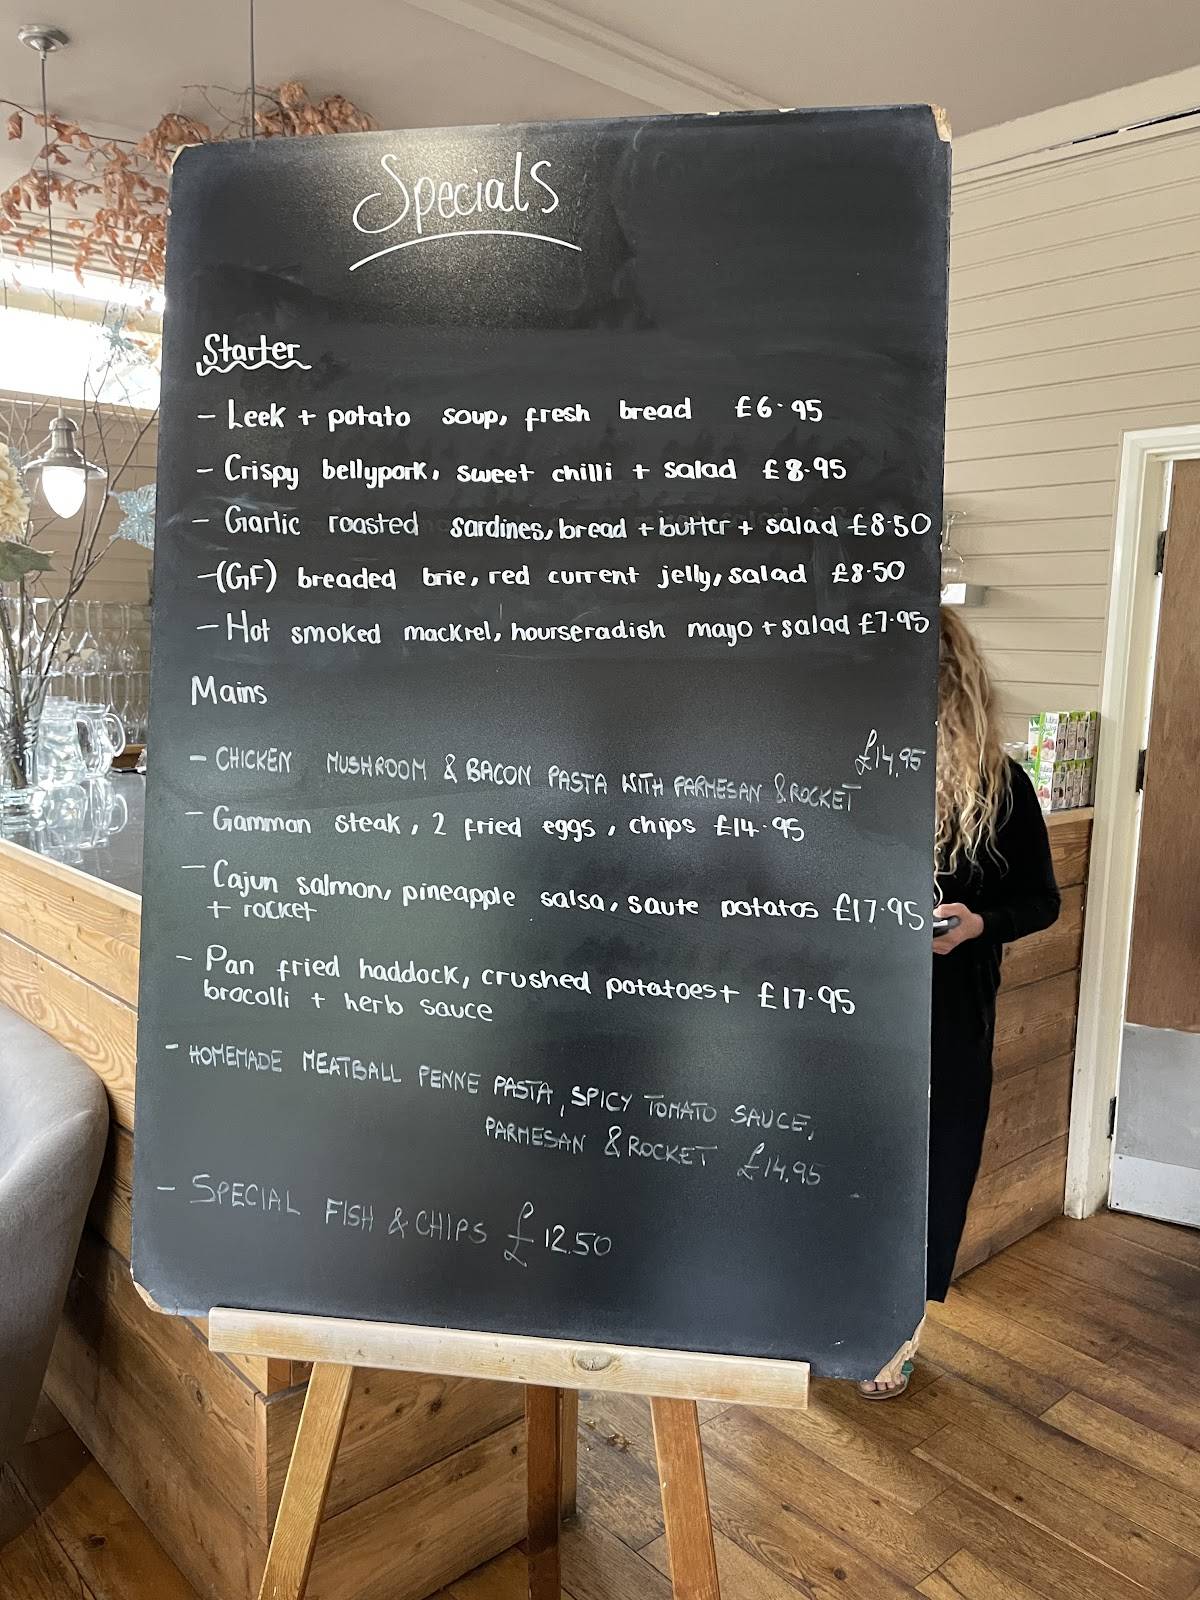 Specials
Starter
- Leek + potato soup, fresh bread £6.95
- Crispy bellypork, sweet chilli + salad £8.95
- Garlic roasted sardines, bread + butter + salad £8.50
- (GF) breaded brie, red current jelly, salad £8.50
- Hot smoked mackrel, hourseradish mayo + salad £7.95
Mains
- CHICKEN MUSHROOM & BACON PASTA WITH PARMESAN & ROCKET £14.95
- Gammon steak, 2 fried eggs, chips £14.95
- Cajun salmon, pineapple salsa, saute potatos £17.95
+ rocket
- Pan fried haddock, crushed potatoes + £17.95
brocolli + herb sauce
- HOMEMADE MEATBALL PENNE PASTA, SPICY TOMATO SAUCE,
PARMESAN & ROCKET £14.95
- SPECIAL FISH & CHIPS £12.50